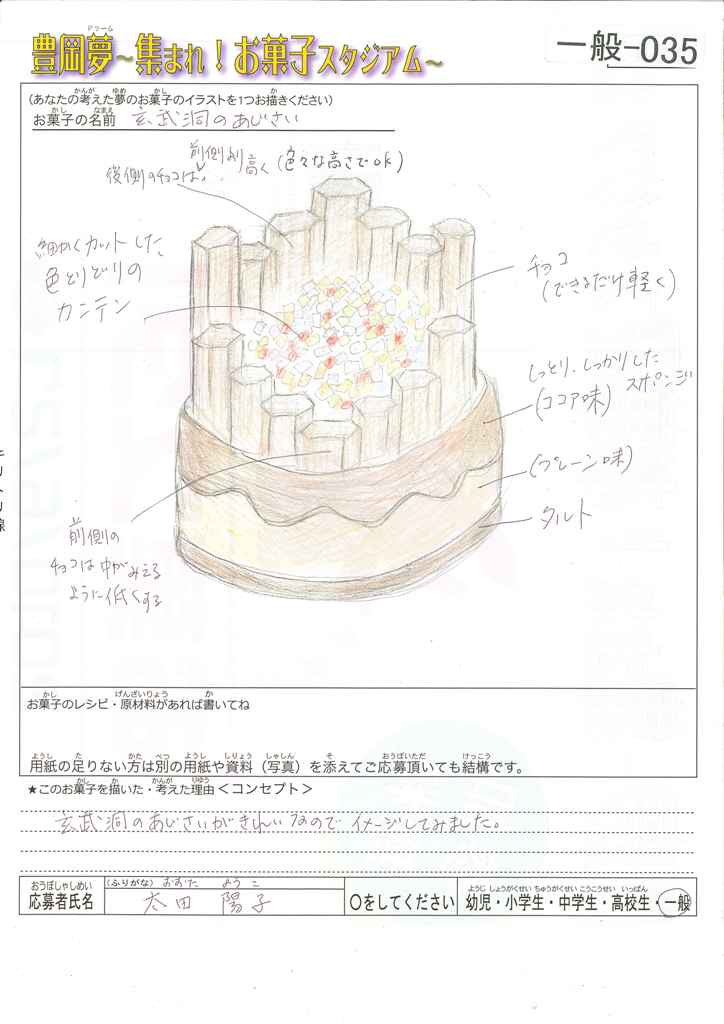 豊岡夢～集まれ！お菓子スタジアム～
ドリーム
一般-035
(あなたの考えた夢のお菓子のイラストを1つお描きください)
お菓子の名前 玄武洞のあじさい
前側より
後側のチョコは、高く(色々な高さでOK)
細かくカットした
色とりどりの
カンテン
チョコ
(できるだけ軽く)
しっとり、しっかりした
スポンジ
(ココア味)
(プレーン味)
タルト
前側の
チョコは中がみえる
ように低くする
キリトリ線
お菓子のレシピ・原材料があれば書いてね
用紙の足りない方は別の用紙や資料（写真）を添えてご応募頂いても結構です。
★このお菓子を描いた・考えた理由＜コンセプト＞
玄武洞のあじさいがきれいなので イメージしてみました。
おうぼしゃしめい
応募者氏名
(ふりがな) おおた ようこ
太田 陽子
○をしてください
ようじ しょうがくせい ちゅうがくせい こうこうせい いっぱん
幼児・小学生・中学生・高校生・一般